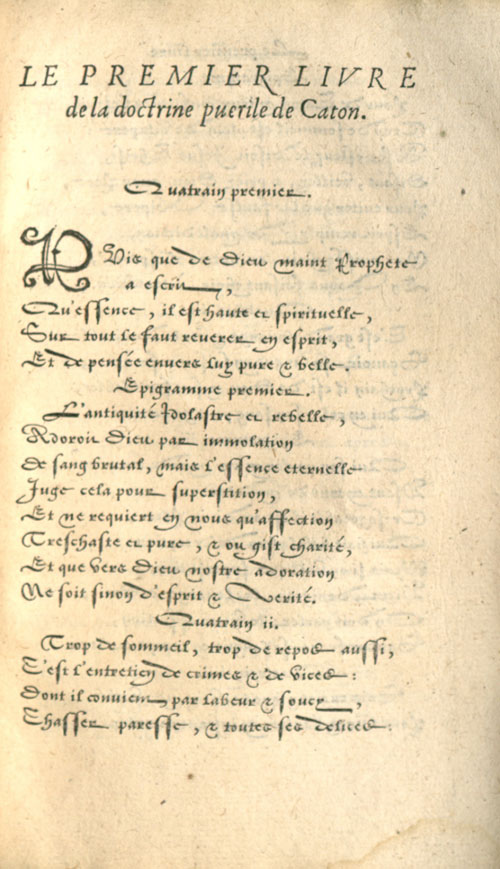 LE PREMIER LIVRE
de la doctrine puerile de Caton.
Quatrain premier.
PVis que de Dieu maint Prophete
a escrit,
Qu'essence, il est haute et spirituelle,
Sur tout le faut reverer en esprit,
Et de pensée envers luy pure & belle.
Epigramme premier.
L'antiquité Idolastre et rebelle,
Adoroit Dieu par immolation
De sang brutal, mais l'essence eternelle
Juge cela pour superstition,
Et ne requiert en nous qu'affection
Treschaste et pure, & ou gist charité,
Et que vers Dieu nostre adoration
Ne soit sinon d'esprit & Verité.
Quatrain ii.
Trop de sommeil, trop de repos aussi,
C'est l'entretien de crimes & de vices:
Dont il convient par labeur & soucy,
Chasser paresse, & toutes ses delices: